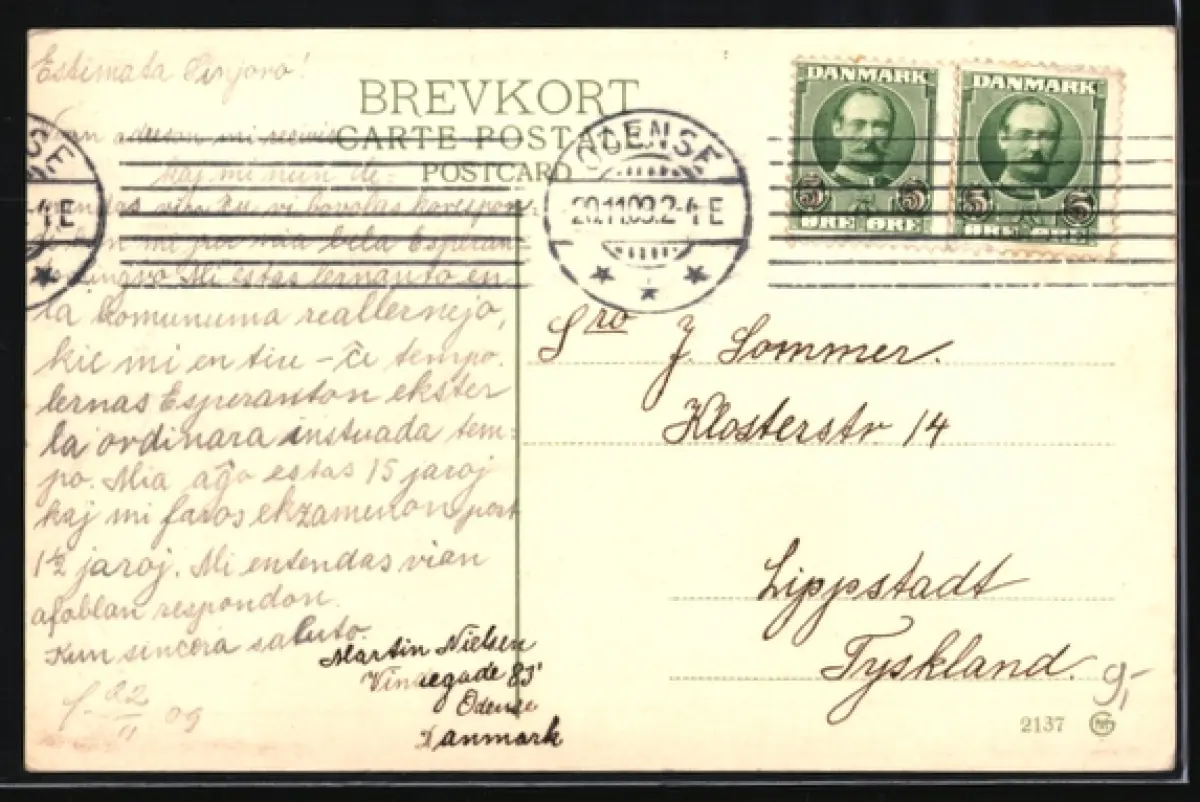 Estimata Sinjoro!
BREVKORT
CARTE POSTALE
POSTCARD
Vian adreson mi
kaj mi nun de-
vi korespon-
mi por nia bela Esperan-
Mi estas lernanto en
la Komunuma reallernejo,
kie mi en tiu-ĉi tempo
lernas Esperanton ekster
la ordinara instruada tem-
po. Mia aĝo estas 15 jaroj
kaj mi faros ekzamenon post
1½ jaroj. Mi entendas vian
afablan respondon.
Kun sincera saluto.
Martin Nielsen
Vindegade 83
Odense
Danmark
22/11 09
DANMARK
5 5
ØRE ØRE
DANMARK
5 5
ØRE ØRE
ODENSE
20.11.09.2-4E
SE
-4E
Sro J. Sommer.
Klosterstr 14
Lippstadt
Tyskland.
9,-
2137